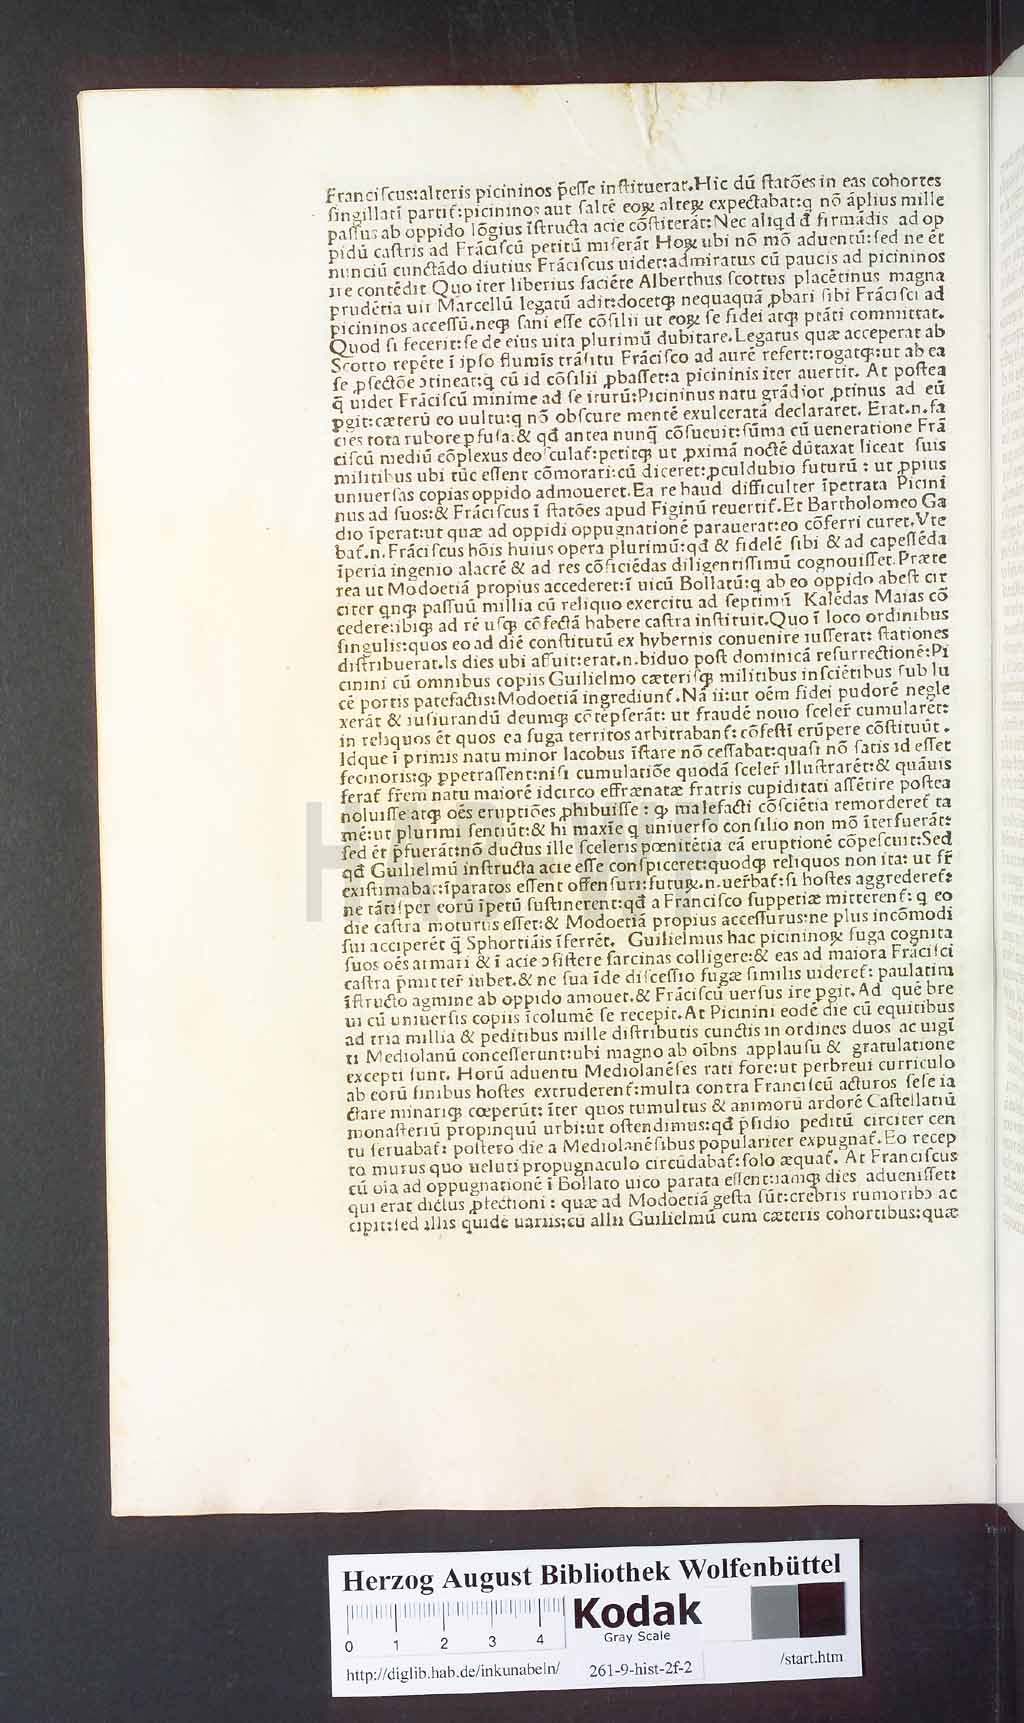 Franciſcus:alteris picininos p̄eſſe inſtituerat.Hic dū ſtatōes in eas cohortes
ſingillatī partit᷑:picininos aut ſaltē eoꝝ alteꝝ expectabat:q nō āplius mille
paſſus ab oppido lōgius īſtructa acie cōſtiterāt:Nec aliqd đ firmādis ad op
pidū caſtris ad Frāciſcū petitū miſerāt Hoꝝ ubi nō mō aduentū:ſed ne ēt
nunciū cunctādo diutius Frāciſcus uidet:admiratus cū paucis ad picininos
ire contēdit Quo iter liberius faciēte Alberthus ſcottus placētinus magna
prudētia uir Marcellū legatū adit:docetqꝫ nequaquā ꝓbari ſibi Frāciſci ad
picininos acceſſū.neqꝫ ſani eſſe cōſilii ut eoꝝ ſe fidei atqꝫ ptāti committat.
Quod ſi fecerit:ſe de eius uita plurimū dubitare.Legatus quæ acceperat ab
Scotto repēte ī ipſo flumīs trāſitu Frāciſco ad aurē refert:rogatqꝫ:ut ab ea
ſe ꝓfectōe ↄtineat:q̨ cū id cōſilii ꝓbaſſet:a picininis iter auertit. At poſtea
q̄ uidet Frāciſcū minime ad ſe iturū:Picininus natu grādior ꝓtinus ad eū
ꝑgit:cæterū eo uultu:q nō obſcure mentē exulceratā declararet. Erat.n.fa
cies tota rubore ꝑfuſa:& qđ antea nunq̄ cōſueuit:ſūma cū ueneratione Frā
ciſcū mediū cōplexus deoſculat᷑:petitqꝫ ut ꝓximā noctē dūtaxat liceat ſuis
militibus ubi tūc eſſent cōmorari:cū diceret:ꝓculdubio futurū : ut ꝓpius
uniuerſas copias oppido admoueret.Ea re haud difficulter īpetrata Picini
nus ad ſuos:& Frāciſcus ī ſtatōes apud Figinū reuertit᷑.Et Bartholomeo Ga
dio īperat:ut quæ ad oppidi oppugnationē parauerat:eo cōferri curet.Vte
bat᷑.n.Frāciſcus hōis huius opera plurimū:qđ & fidelē ſibi & ad capeſſēda
īperia ingenio alacrē & ad res cōficiēdas diligentiſſimū cognouiſſet.Præte
rea ut Modoetiā propius accederet:ī uicū Bollatū:q ab eo oppido abeſt cir
citer qnqꝫ paſſuū millia cū reliquo exercitu ad ſeptimū Kalēdas Maias cō
cedere:ibiqꝫ ad rē uſqꝫ cōfectā habere caſtra inſtituit.Quo ī loco ordinibus
ſingulis:quos eo ad diē conſtitutū ex hybernis conuenire iuſſerat: ſtationes
diſtribuerat.Is dies ubi affuit:erat.n.biduo poſt dominicā reſurrectionē:Pi
cinini cū omnibus copiis Guilielmo cæteriſqꝫ militibus inſciētibus ſub lu
cē portis patefactis:Modoetiā ingrediunt᷑.Nā ii:ut oēm fidei pudorē negle
xerāt & iuſiurandū deumqꝫ cōtēpſerāt: ut fraudē nouo ſceler᷑ cumularēt:
in reliquos ēt quos ea fuga territos arbitrabant᷑: cōfeſti erūpere cōſtituūt.
Idque ī primis natu minor Iacobus īſtare nō ceſſabat:quaſi nō ſatis id eſſet
fecinoris:ꝙ ꝑpetraſſent:niſi cumulatiōe quodā ſceler᷑ illuſtrarēt:& quāuis
ferat᷑ fr̄em natu maiorē idcirco effrænatæ fratris cupiditati aſſētire poſtea
noluiſſe atqꝫ oēs eruptiōes ꝓhibuiſſe : ꝙ malefacti cōſciētia remorderet᷑ ta
mē:ut plurimi ſentiūt:& hi maxīe q uniuerſo conſilio non mō īterfuerāt:
ſed ēt p̄fuerāt:nō ductus ille ſceleris pœnitētia eā eruptionē cōpeſcuit:Sed
qđ Guilielmū inſtructa acie eſſe conſpiceret:quodqꝫ reliquos non ita: ut fr̄
exiſtimabat:īparatos eſſent offenſuri:futuꝝ.n.uer̄bat᷑:ſi hoſtes aggrederet᷑:
ne tātiſper eorū īpetū ſuſtinerent:qđ a Franciſco ſuppetiæ mitterent᷑: q eo
die caſtra moturus eſſet:& Modoetiā propius acceſſurus:ne plus incōmodi
ſui acciperēt q̄ Sphortiāis īferrēt. Guilielmus hac picininoꝝ fuga cognita
ſuos oēs armari & ī acie ↄſiſtere farcinas colligere:& eas ad maiora Frāciſci
caſtra p̄mitter᷑ iubet.& ne ſua īde diſceſſio fugæ ſimilis uideret᷑: paulatim
īſtructo agmine ab oppido amouet.& Frāciſcū uerſus ire ꝑgit.Ad quē bre
ui cū uniuerſis copiis īcolumē ſe recepit.At Picinini eodē die cū equitibus
ad tria millia & peditibus mille diſtributis cunctis in ordines duos ac uigī
ti Mediolanū conceſſerunt:ubi magno ab oībns applauſu & gratulatione
excepti ſunt. Horū aduentu Mediolanēſes rati fore:ut perbreui curriculo
ab eorū finibus hoſtes extruderent᷑:multa contra Franciſcū acturos ſeſe ia
ctare minariqꝫ cœperūt: īter quos tumultus & animorū ardorē Caſtellatiū
monaſteriū propinquū urbi:ut oſtendimus:qđ p̄ſidio peditū circiter cen
tū ſeruabat᷑: poſtero die a Mediolanēſibus populariter expugnat᷑.Eo recep
to murus quo ueluti propugnaculo circūdabat᷑:ſolo æquat᷑. At Franciſcus
cū oīa ad oppugnationē ī Bollato uico parata eſſent:iamqꝫ dies adueniſſet:
qui erat dictus ꝓfectioni : quæ ad Modoetiā geſta ſūt:crebris rumoribꝰ ac
cipit:ſed illis quidē uariis;cū alii Guilielmū cum cæteris cohortibus:quæ
HAB-WF
Herzog August Bibliothek Wolfenbüttel
0 1 2 3 4
Kodak
Gray Scale
http://diglib.hab.de/inkunabeln/ 261-9-hist-2f-2 /start.htm